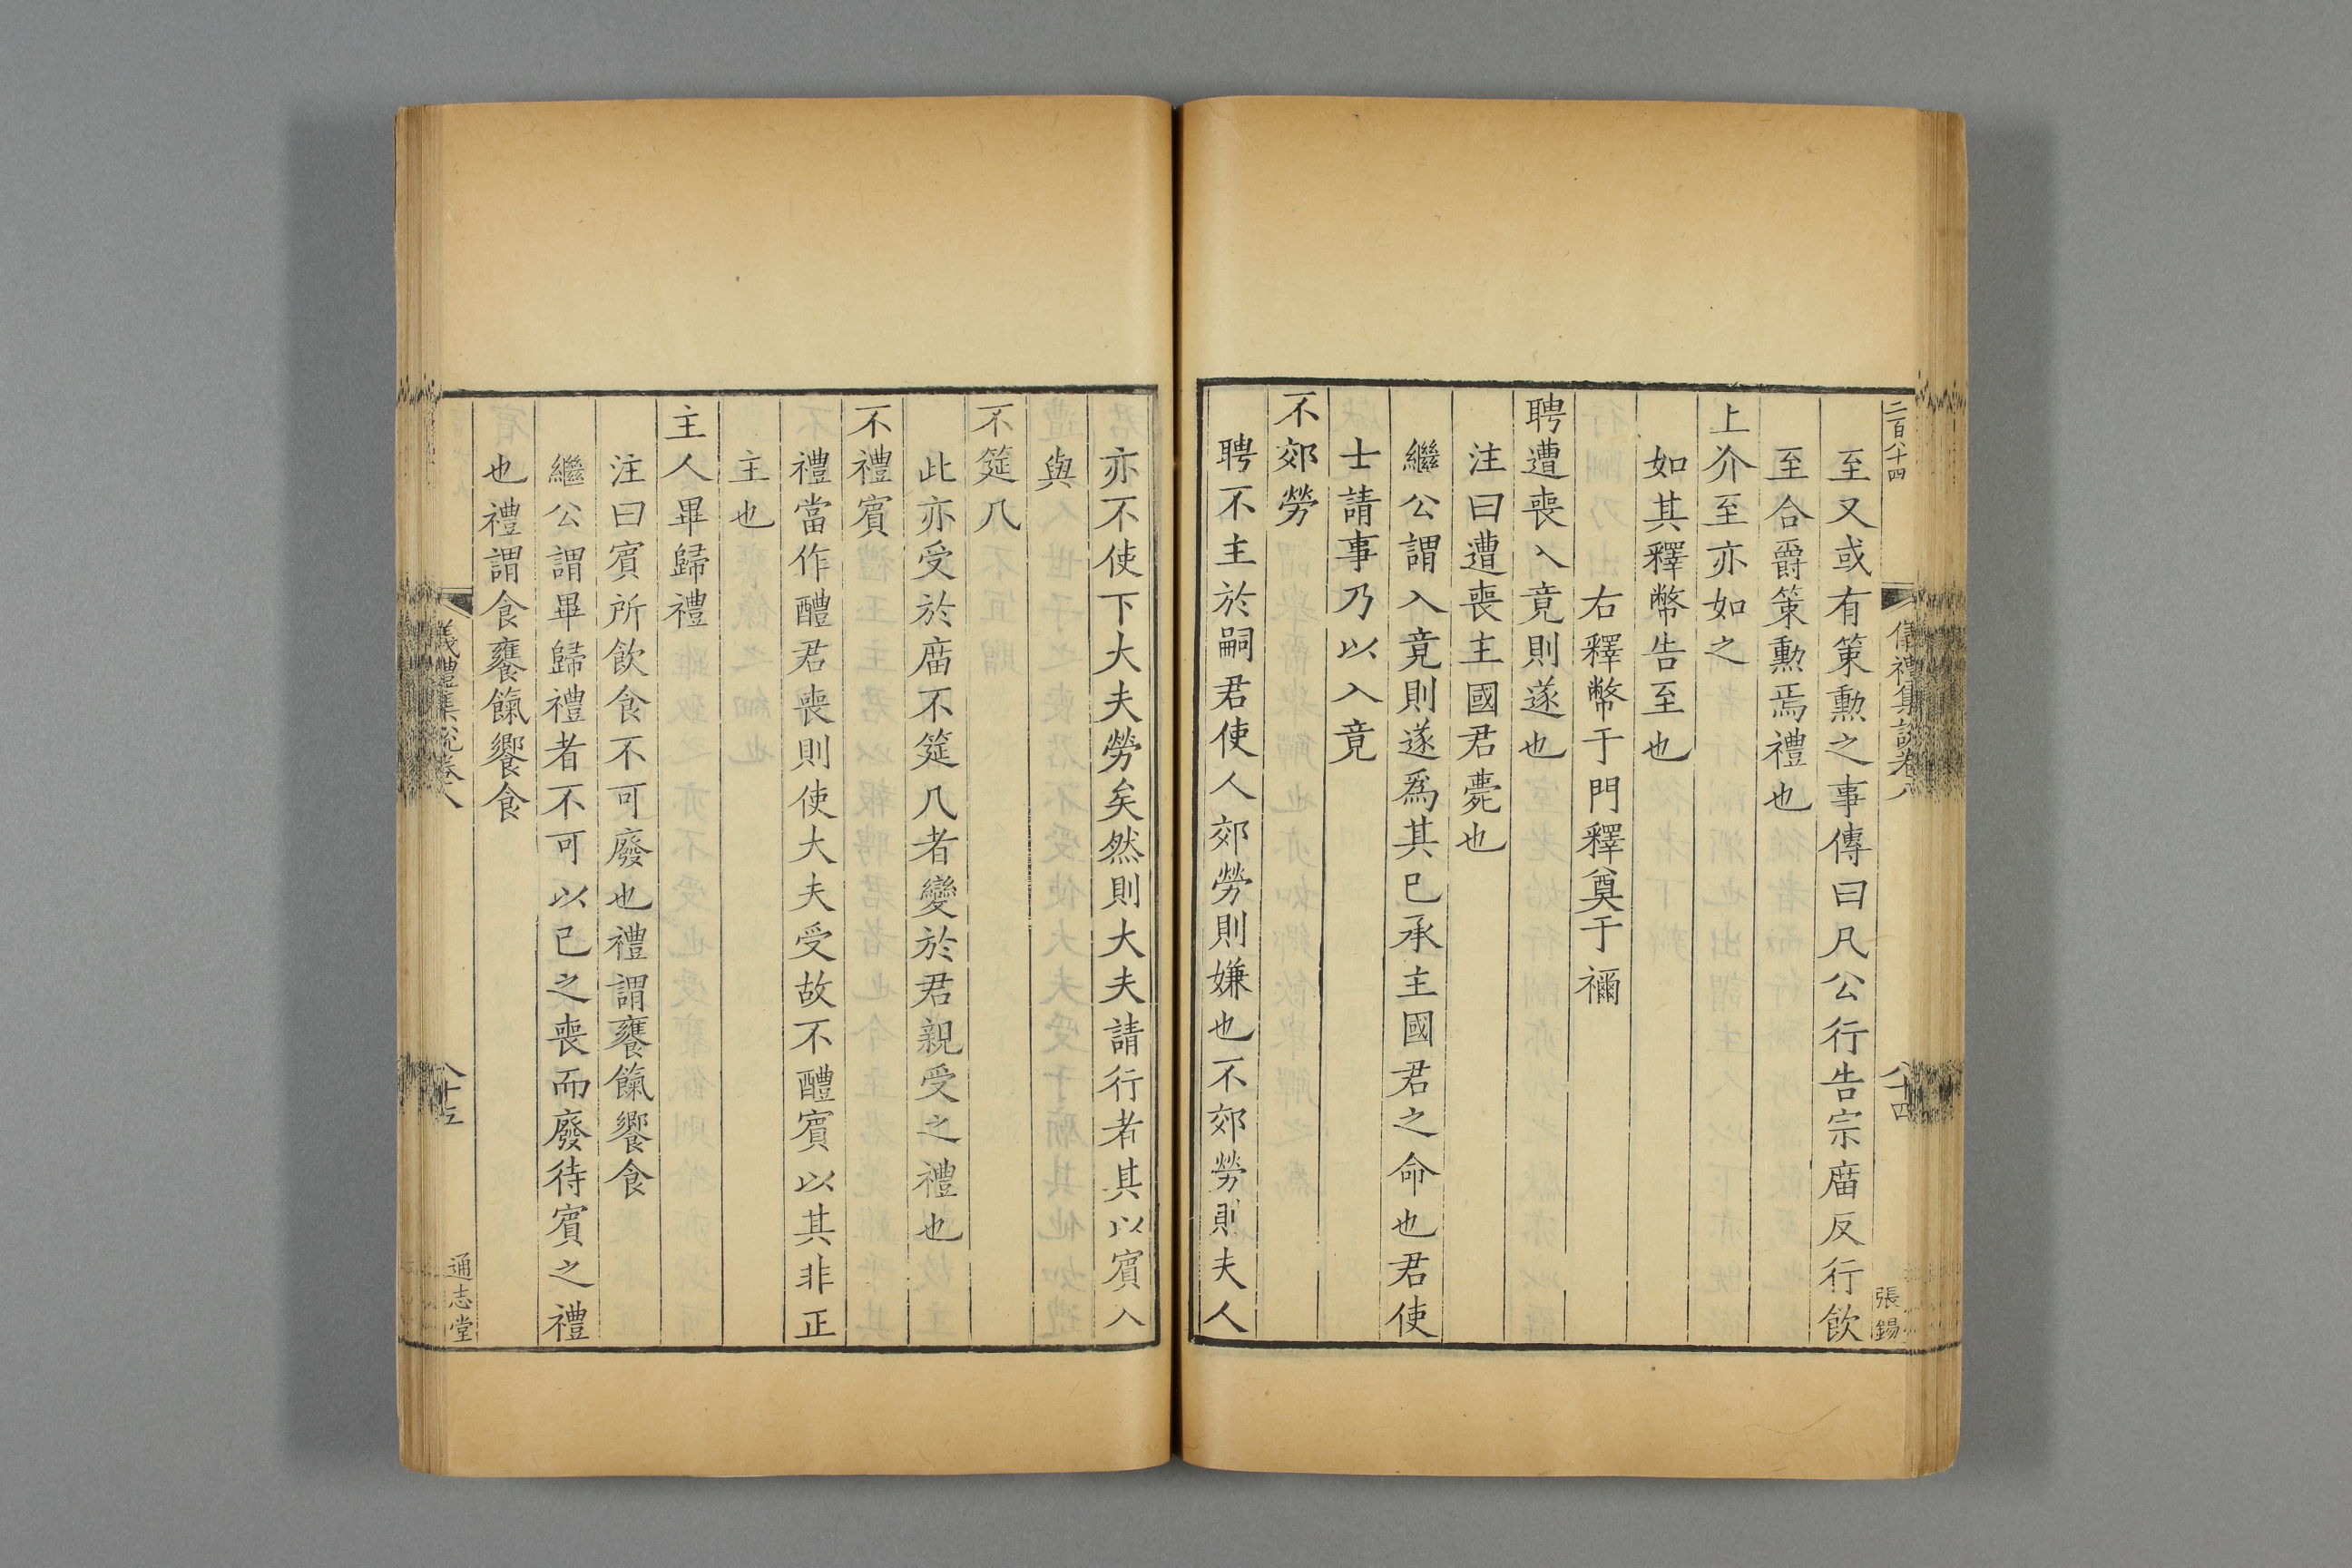 二百八十四
儀禮集說卷八
八十四
張錫
至又或有策勲之事傳曰凡公行告宗庿反行飲
至合爵策勲焉禮也
上介至亦如之
如其釋幣告至也
右釋幣于門釋奠于禰
聘遭喪入竟則遂也
注曰遭喪主國君薨也
繼公謂入竟則遂爲其已承主國君之命也君使
士請事乃以入竟
不郊勞
聘不主於嗣君使人郊勞則嫌也不郊勞則夫人
亦不使下大夫勞矣然則大夫請行者其以賓入
與
不筵几
此亦受於庿不筵几者變於君親受之禮也
不禮賓
禮當作醴君喪則使大夫受故不醴賓以其非正
主也
主人畢歸禮
注曰賓所飲食不可廢也禮謂饔餼饗食
繼公謂畢歸禮者不可以已之喪而廢待賓之禮
也禮謂食饔餼饗食
儀禮集說卷八
八十五
通志堂